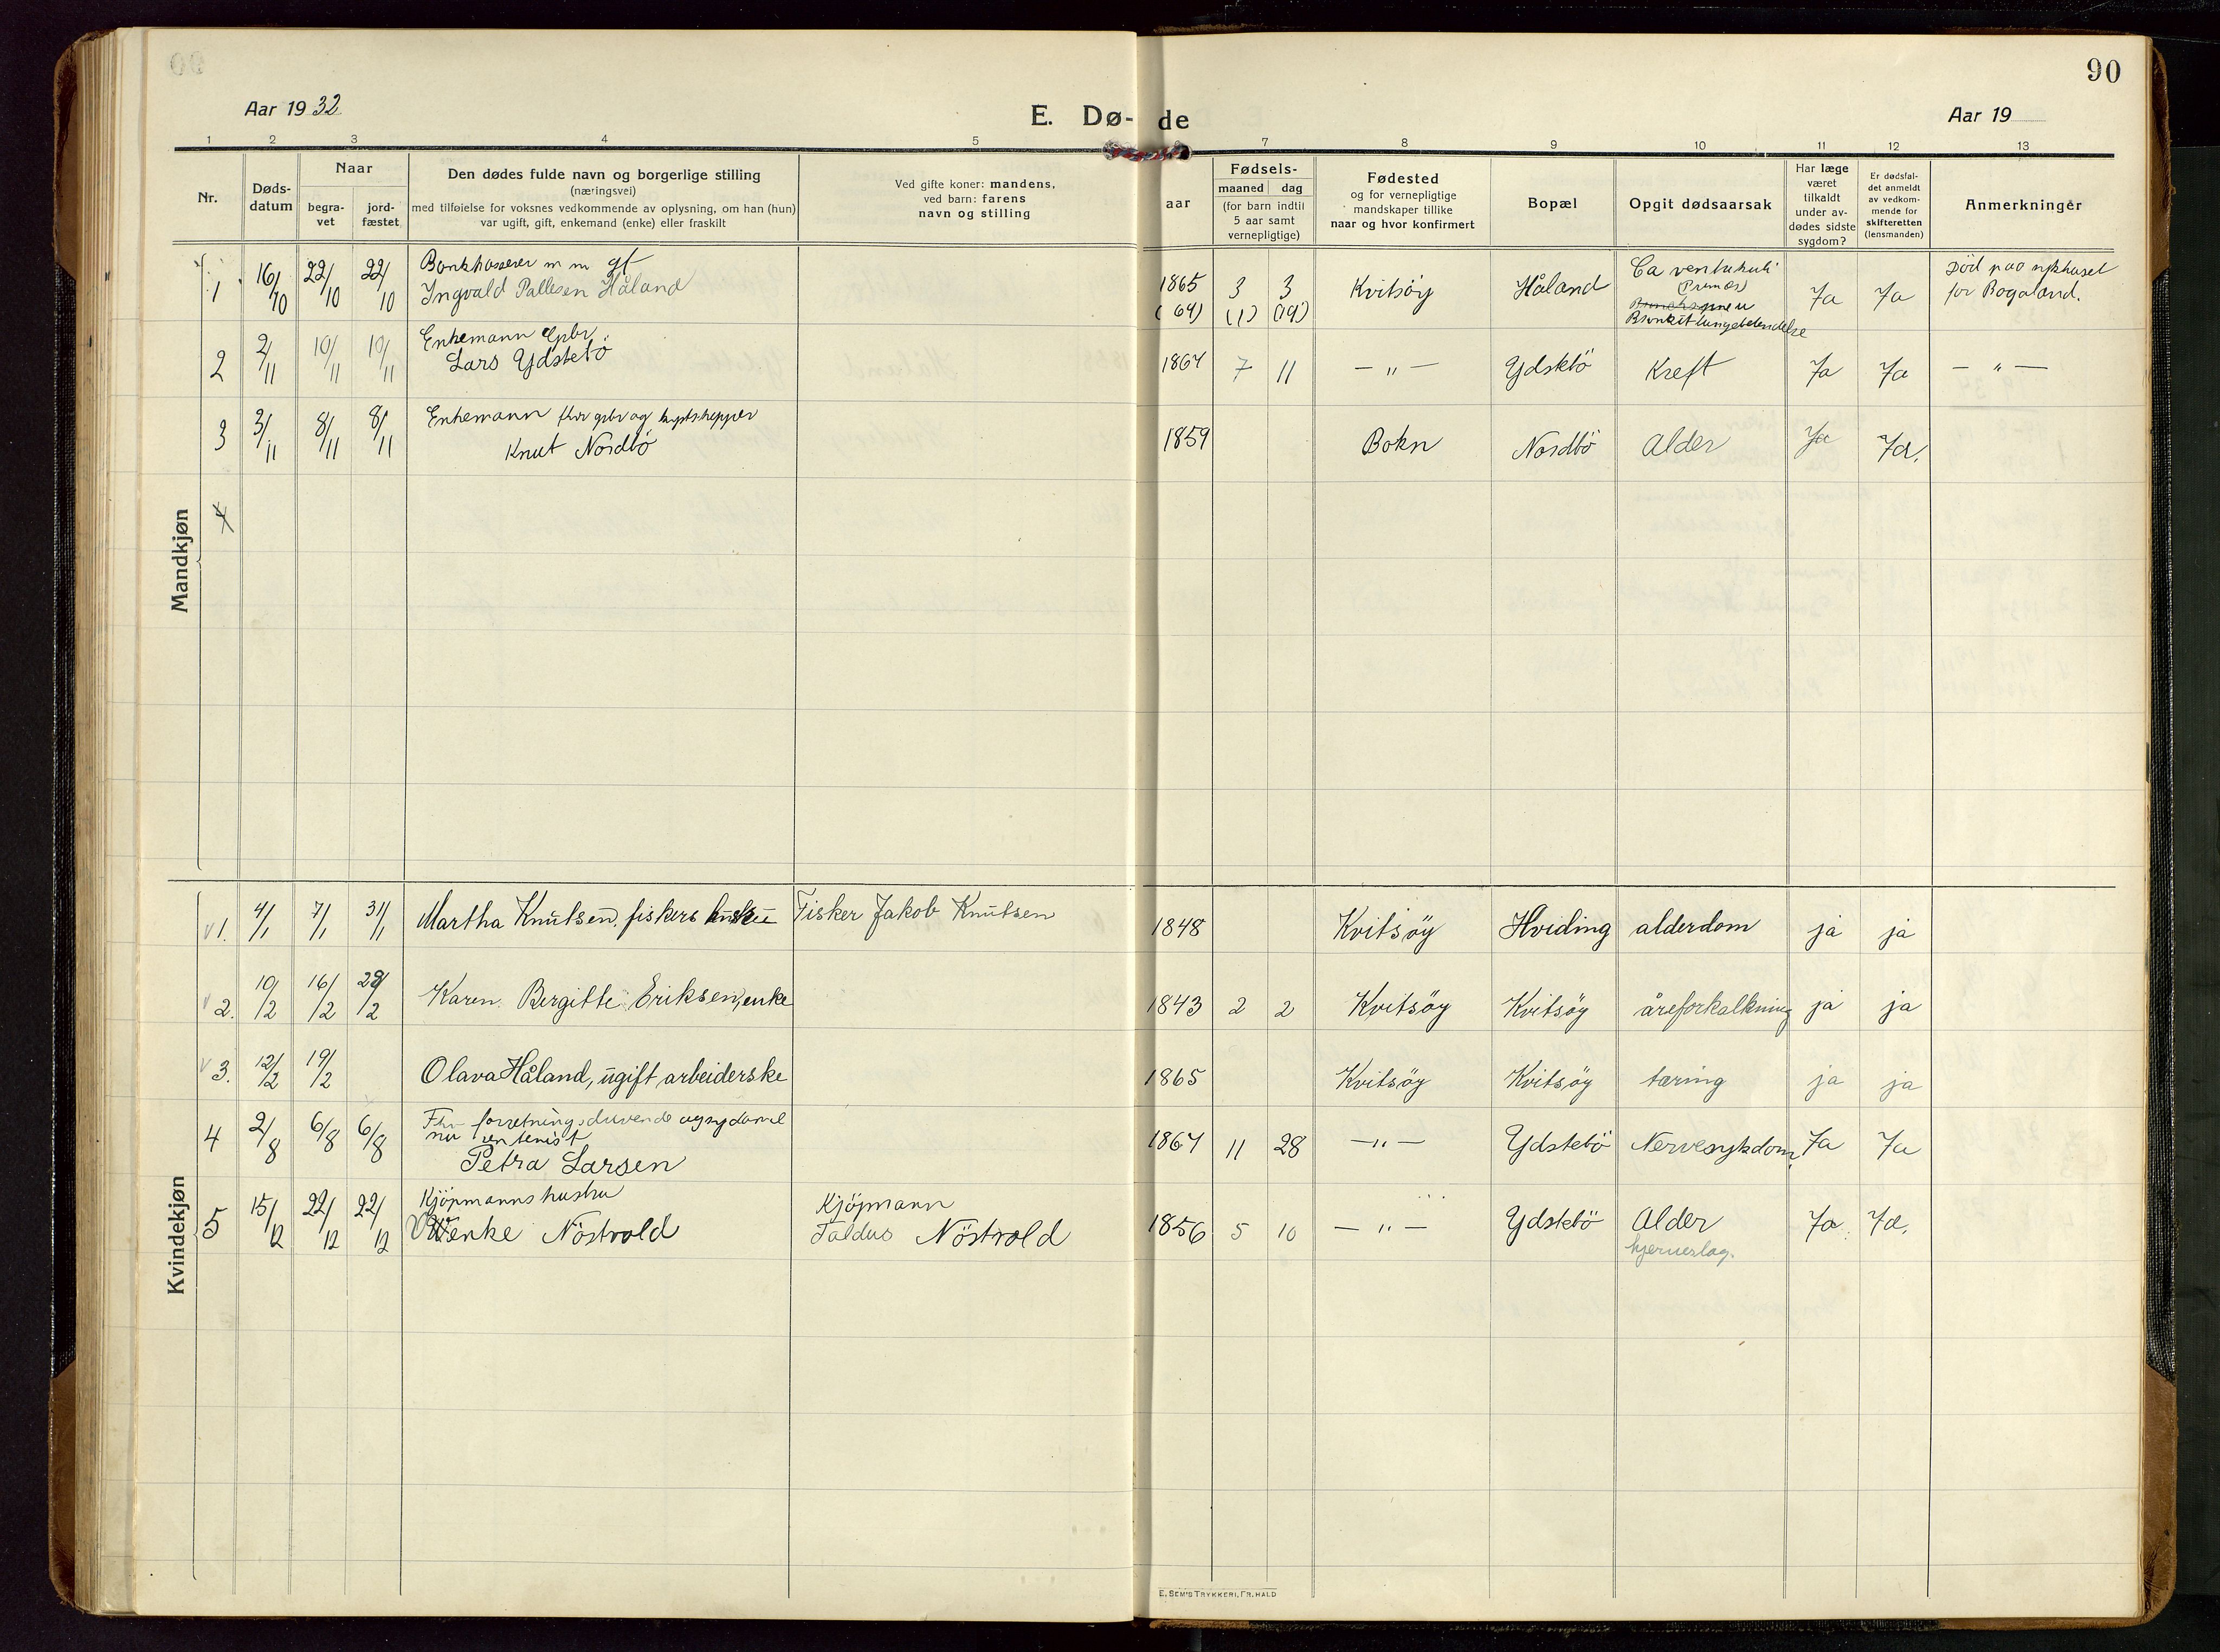 90
Aar 1932
E. Dø-de
Aar 19
1 2 3 4 5 7 8 9 10 11 12 13
Nr.
Døds-
datum
Naar
begra-
vet
jord-
fæstet
Den dødes fulde navn og borgerlige stilling
(næringsvei)
med tilføielse for voksnes vedkommende av oplysning, om han (hun)
var ugift, gift, enkemand (enke) eller fraskilt
Ved gifte koner: mandens,
ved barn: farens
navn og stilling
Fødsels-
aar
maaned dag
(for barn indtil
5 aar samt
vernepligtige)
Fødested
og for vernepligtige
mandskaper tillike
naar og hvor konfirmert
Bopæl
Opgit dødsaarsak
Har læge
været
tilkaldt
under av-
dødes sidste
sygdom?
Er dødsfal-
det anmeldt
av vedkom-
mende for
skifteretten
(lensmanden)
Anmerkninger
Mandkjøn
1 16/10 22/10 22/10 Bankkasserer m m gf
Ingvald Pallesen Håland
1865 3 3 Kvitsöy Håland Ca ventrikuli
(Primær)
Bronkit lungebetendelse
(64) (1) (19)
Ja Ja Död paa sykhuset
for Rogaland.
2 2/11 10/11 10/11 Enkemann Gpbr.
Lars Ydstebö
1864 7 11 — " — Ydstebö Kreft Ja Ja — " —
3 3/11 8/11 8/11 Enkemann fhv gpbr og
Knut Nordbö
1859 Bokn Nordbö Alder Ja Ja.
4
Kvindekjøn
1. 4/1 7/1 31/1 Martha Knutsen, fiskers Fisker Jakob Knutsen 1848 Kvitsöy Hviding alderdom ja ja
2. 10/2 16/2 28/2 Karen Bergitte Eriksen, enke 1843 2 2 Kvitsöy Kvitsöy åreforkalkning ja ja
3. 12/2 19/2 Olava Håland, ugift, arbeiderske 1865 Kvitsöy Kvitsöy tæring ja ja
4 2/8 6/8 6/8 Fhv forretningsdrivende og sydame
nu rentenist
Petra Larsen
1864 11 28 — " — Ydstebö Nervesykdom Ja Ja
5 15/12 22/12 22/12 Kjöpmanns hustru
Wenke Nöstvold
Kjöpmann
Taldus Nöstvold
1856 5 10 — " — Ydstebö Alder
hjerneslag.
Ja. Ja.
E. SEM'S TRYKKERI, FR.HALD